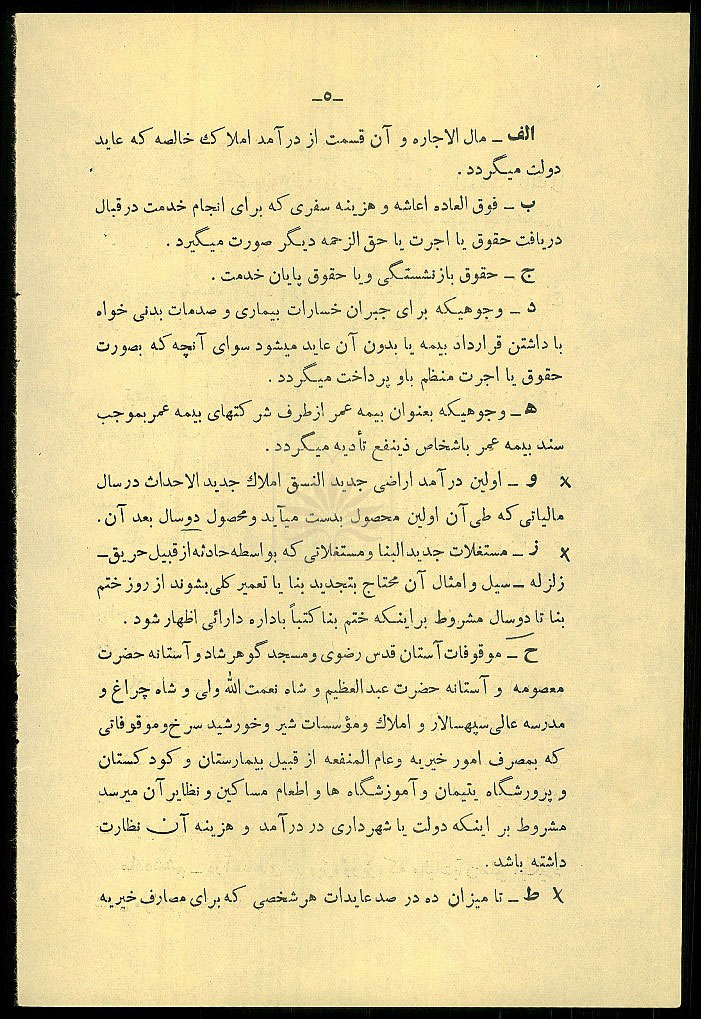 ـ۵ـ
الف ـ مال الاجاره و آن قسمت از درآمد املاک خالصه که عاید
دولت میگردد .
ب ـ فوق العاده اعاشه و هزینه سفری که برای انجام خدمت درقبال
دریافت حقوق یا اجرت یا حق الزحمه دیگر صورت میگیرد .
ج ـ حقوق بازنشستگی ویا حقوق پایان خدمت .
د ـ وجوهیکه برای جبران خسارات بیماری و صدمات بدنی خواه
با داشتن قرارداد بیمه یا بدون آن عاید میشود سوای آنچه که بصورت
حقوق یا اجرت منظم باو پرداخت میگردد .
ه ـ وجوهیکه بعنوان بیمه عمر ازطرف شرکتهای بیمه عمربموجب
سند بیمه عمر باشخاص ذینفع تأدیه میگردد .
x و ـ اولین درآمد اراضی جدید النسق املاک جدید الاحداث درسال
مالیاتی که طی آن اولین محصول بدست میآید ومحصول دوسال بعد آن.
x ز ـ مستغلات جدیدالبنا ومستغلاتی که بواسطه حادثه ازقبیل حریق ـ
زلزله ـ سیل و امثال آن محتاج بتجدید بنا یا تعمیر کلی بشوند از روز ختم
بنا تا دوسال مشروط براینکه ختم بنا کتباً باداره دارائی اظهار شود .
ح ـ موقوفات آستان قدس رضوی ومسجد گوهرشاد و آستانه حضرت
معصومه و آستانه حضرت عبدالعظیم و شاه نعمت الله ولی و شاه چراغ و
مدرسه عالی سپهسالار و املاک ومؤسسات شیر وخورشید سرخ وموقوفاتی
که بمصرف امور خیریه وعام المنفعه از قبیل بیمارستان و کودکستان
و پرورشگاه یتیمان و آموزشگاه ها و اطعام مساکین و نظایر آن میرسد
مشروط بر اینکه دولت یا شهرداری در درآمد و هزینه آن نظارت
داشته باشد .
x ط ـ تا میزان ده در صد عایدات هرشخصی که برای مصارف خیریه